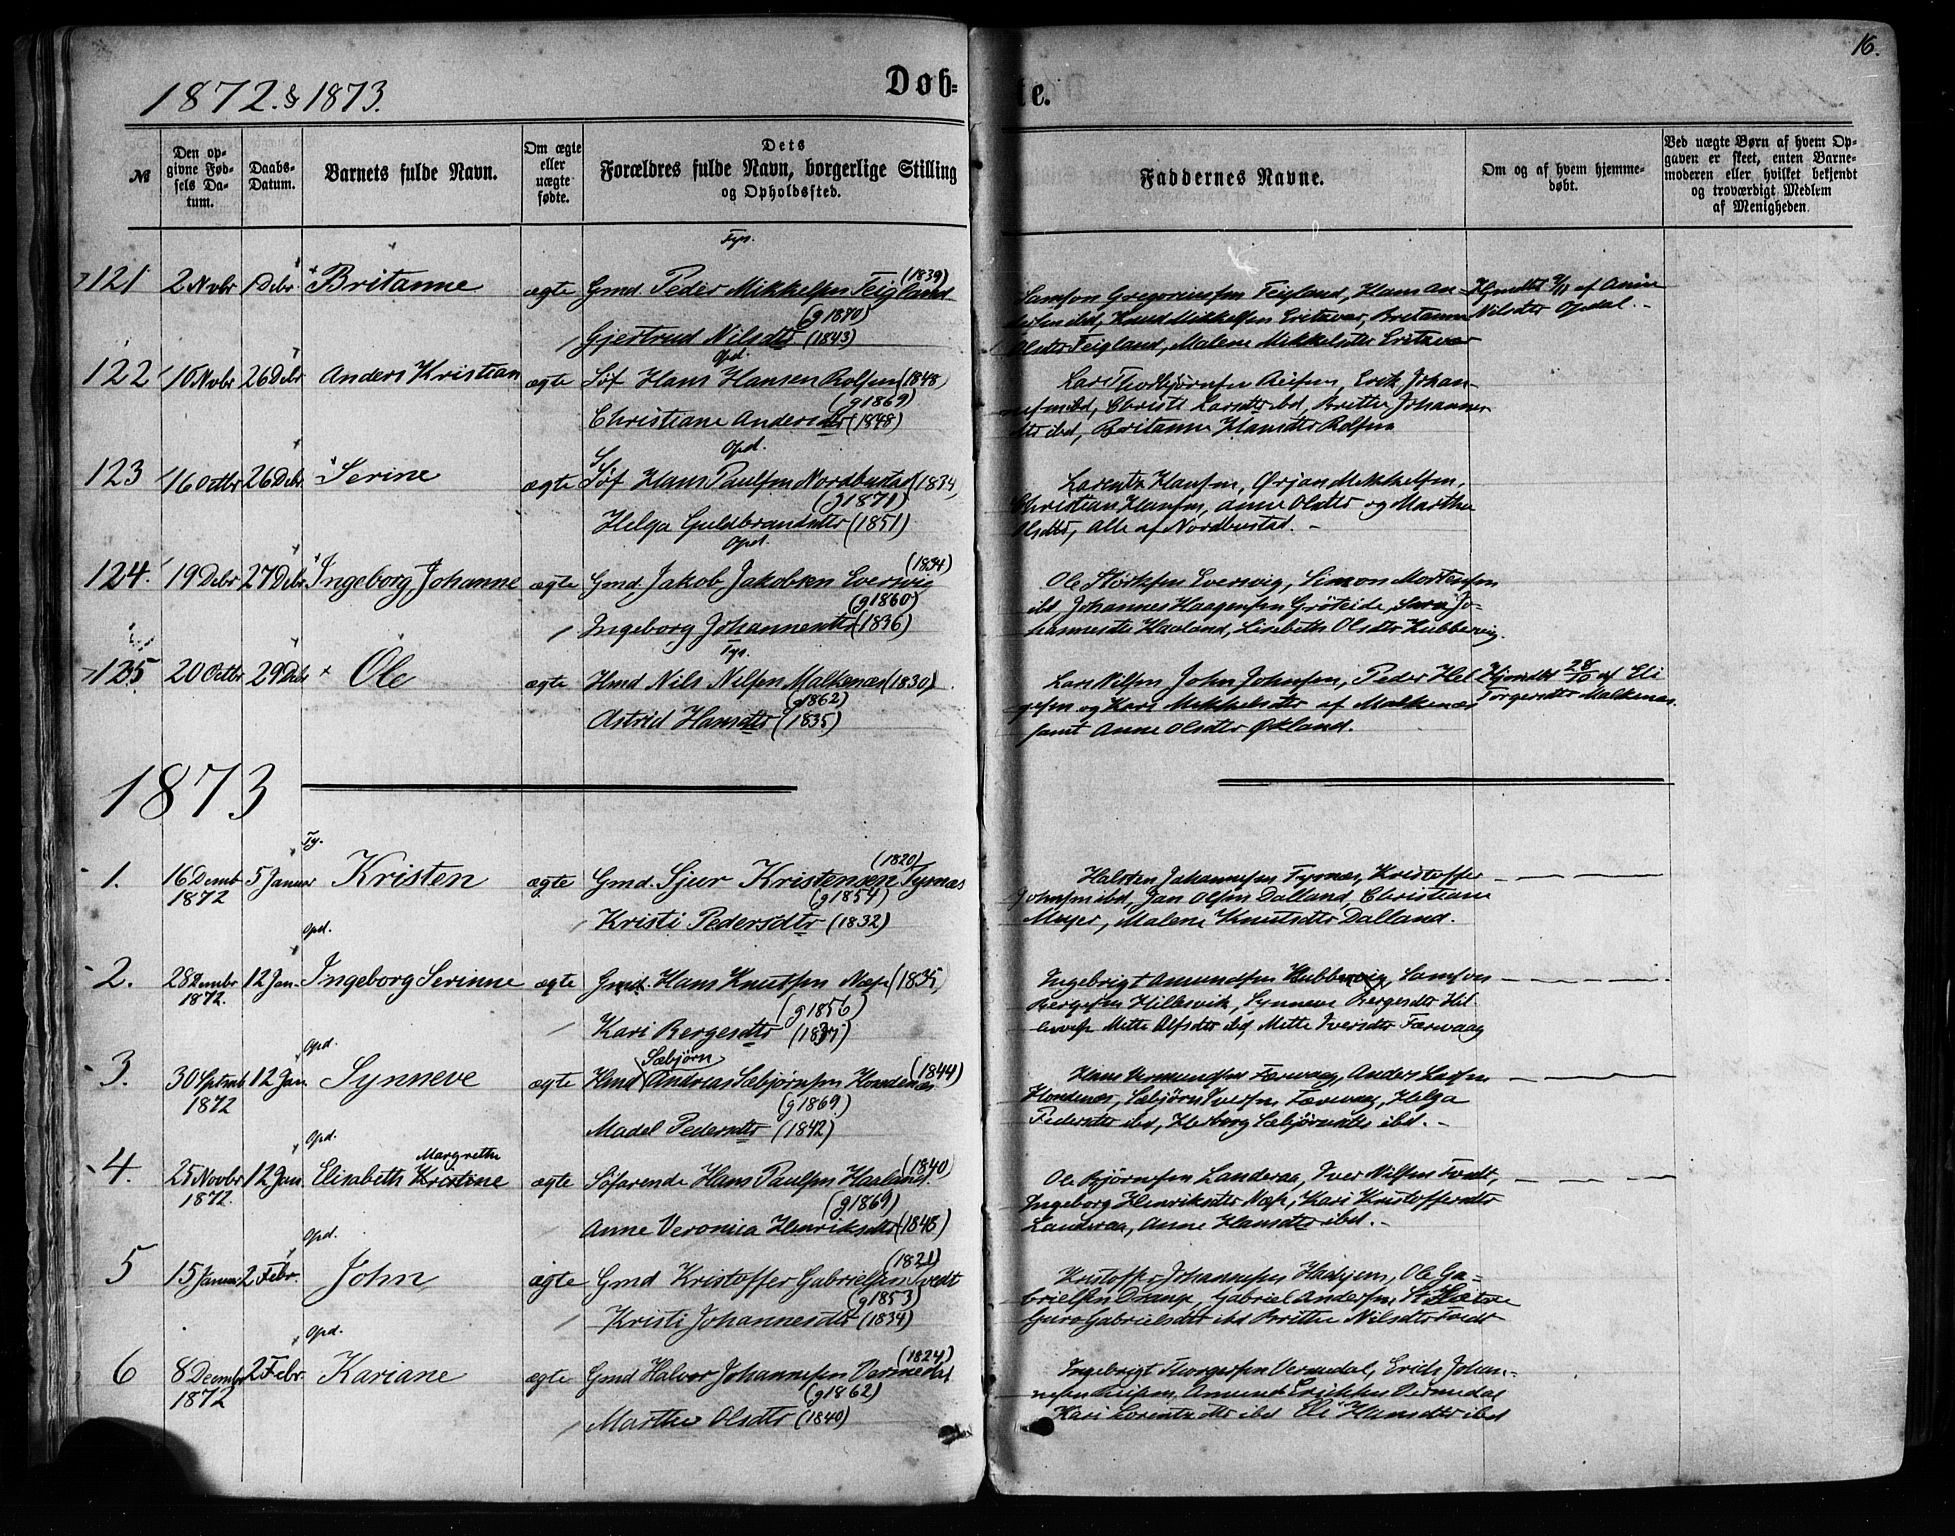 16.
1872. & 1873.
Døb-
te.
№
Den opgivne Fødsels Datum.
Daabs-Datum.
Barnets fulde Navn.
Om ægte eller uægte fødte.
Dets Forældres fulde Navn, borgerlige Stilling og Opholdssted.
Faddernes Navne.
Om og af hvem hjemmedøbt.
Ved uægte Børn af hvem Opgaven er skeet, enten Barnemoderen eller hvilket bekjendt og troværdigt Medlem af Menigheden.
Tys.
121 2 Novbr 1 Debr. Britanne ægte Gmd. Peder Mikkelsen Teigland (1839)
(g 1870)
Gjertrud Nilsdtr (1843)
Samson Gregoriussen Teigland, Hans An-
dersen ibd, Knud Mikkelsen Eritzvær, Britanne
Olsdtr Teigland, Malene Mikkelsdtr Eritzvær
Nilsdtr Opdal.
Opd.
122 10 Novbr 26 Debr Anders Kristian ægte Søf Hans Hansen Rolfsen (1848)
(g 1869)
Christiane Andersdtr (1848)
Lars Thorbjørnsen Reisen, Erik Johan-
nesen ibd, Christi Larsdtr ibd, Brithe Johannes-
dtr ibd, Britanne Hansdtr Rolfsen
Opd.
123 16 Octbr 26 Debr. Serine ægte Søf Hans Paulsen Nordbustad (1834)
(g 1871)
Helga Guldbrandsdtr (1851)
Lorentz Hansen, Ørjan Mikkelsen,
Christian Hansen, Anne Olsdtr og Marthe
Olsdtr, Alle af Nordbustad.
Opd.
124. 19 Debr 27 Debr Ingeborg Johanne ægte Gmd. Jakob Jakobsen Eversvig (1834)
(g 1860)
Ingeborg Johannesdtr (1836)
Ole Størksen Eversvig, Simon Mortensen
ibd Johannes Haagensen Gröteide, Sara Jo-
hannesdtr Haaland, Lisbeth Olsdtr Hubbervig.
Tys.
125 20 Octbr 29 Debr Ole ægte Hmd Nils Nilsen Malkenæs (1830)
(g 1862)
Astrid Hansdtr (1835)
Lars Nilsen John Johnsen, Peder Hel
gesen og Kari Mikkelsdtr af Malkenæs
samt Anne Olsdtr Økland.
Hjmdbt 28/10 af Eli
Torgersdtr Malkenæs.
1873
Ty.
1. 16 Decmb 1872 5 Januar Kristen ægte Gmd. Sjur Kristensen Tysnæs (1820)
(g 1854)
Kristi Pedersdtr (1832)
Halsten Johannesen Tysnæs, Kristoffer
Johnsen ibd, Jan Olsen Dalland, Christiane
Meyer, Malene Knutsdtr Dalland.
Opd.
2. 28 Dcembr 1872. 12 Jan. Ingeborg Serinne ægte Gmd. Hans Knutsen Næse (1835)
(g 1856)
Kari Bergesdtr
Ingebrigt Amundsen Hubbervig, Samson
Bergesen Hillesvik, Synneve Bergesdtr Hil
Mette Alfsdtr ibd Mette Iversdtr Færevaag
Opd.
3. 30 Septmb 1872 12 Jan. Synneve ægte Hmd Sæbjørn Andreas Sæbjørnsen Hovdenæs (1844)
(g 1869)
Madel Pedersdtr (1842)
Hans Amundsen Færevaag, Anders Larsen
Hovdenæs, Sæbjørn Iversen Færevaag, Helga
Pedersdtr ibd, Herborg Sæbjørnsdtr ibd.
Opd.
4. 25 Novbr 1872. 12 Jan Elisabeth Kristine Margrethe ægte Søfarende Hans Paulsen Haaland (1840)
(g 1869)
Anne Veronica Henriksdtr (1848)
Ole Bjørnsen Landeraa, Iver Nilsen Tvedt,
Ingeborg Henriksdtr Næse, Kari Kristoffersdtr
Landeraa, Anne Hansdtr ibd.
Opd.
5 15 Januar 2 Febr. John ægte Gmd Kristoffer Gabrielsen Tvedt (1821)
(g 1853)
Kristi Johannesdtr (1834)
Kristoffer Johannesen Hadjem, Ole Ga-
brielsen Drange, Gabriel Andersen, St Sætre
Guro Gabrielsdtr ibd Brithe Nilsdtr Tvedt
Opd.
6 8 Decmbr 1872 2 Febr. Kariane ægte Gmd Halvor Johannesen Vermedal (1824)
(g 1862)
Marthe Olsdtr (1840)
Ingebrigt Thorgersen Vermedal, Erich Johan-
nesen Reisen, Amund Eriksen Vermedal
Kari Lorentzdtr ibd Eli Hansdtr ibd